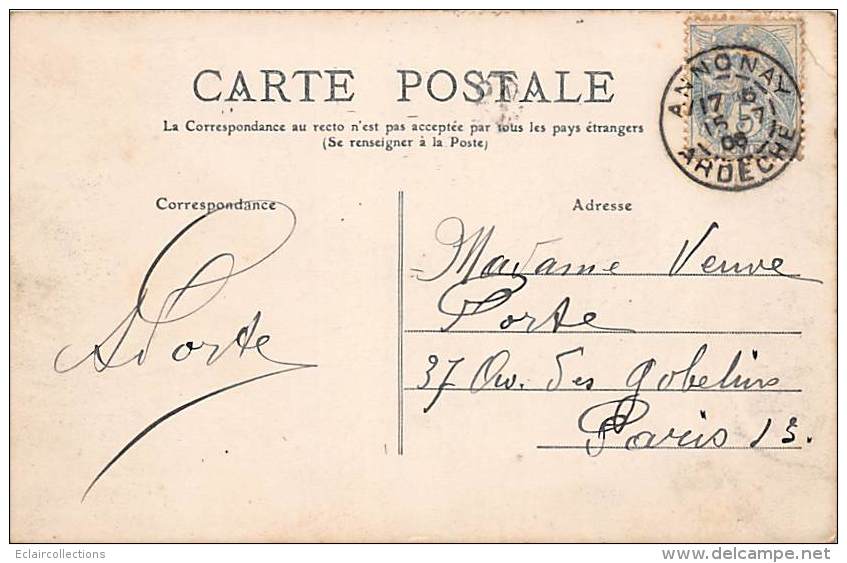 CARTE POSTALE
La Correspondance au recto n'est pas acceptée par tous les pays étrangers
(Se renseigner à la Poste)
Correspondance
Adresse
ANNONAY
ARDÈCHE
Madame Veuve
Porte
37 Av. des gobelins
Paris 13.
A Porte
Eclaircollections
www.delcampe.net